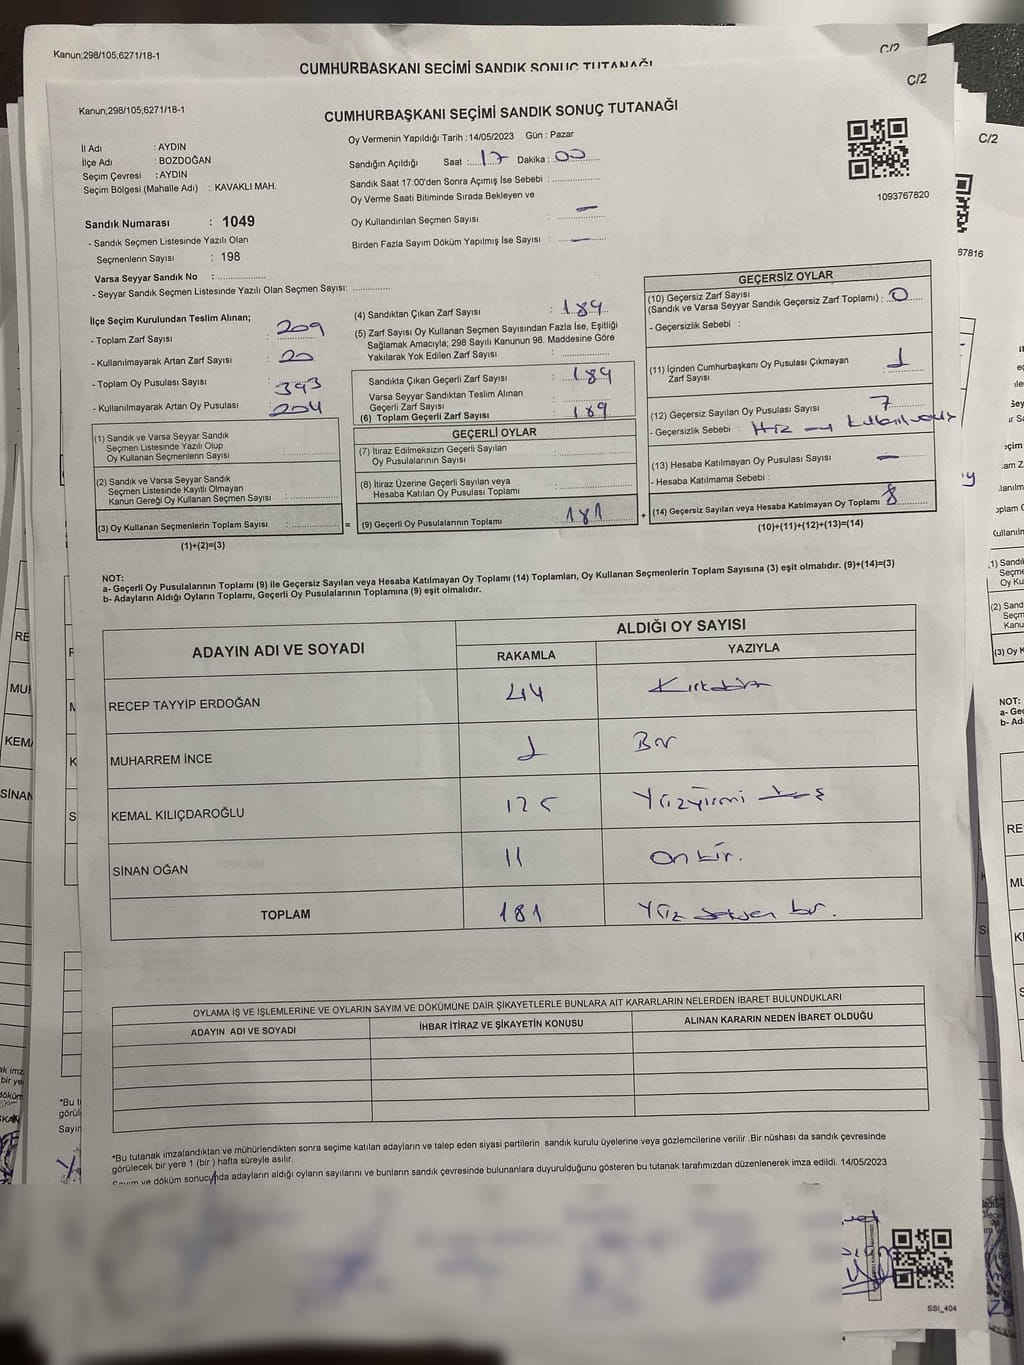 Kanun;298/105;6271/18-1
C/2
CUMHURBAŞKANI SEÇİMİ SANDIK SONUÇ TUTANAĞI
C/2
Kanun;298/105;6271/18-1
CUMHURBAŞKANI SEÇİMİ SANDIK SONUÇ TUTANAĞI
C/2
İl Adı : AYDIN
İlçe Adı : BOZDOĞAN
Seçim Çevresi : AYDIN
Seçim Bölgesi (Mahalle Adı) : KAVAKLI MAH.
Oy Vermenin Yapıldığı Tarih : 14/05/2023 Gün : Pazar
Sandığın Açıldığı Saat : 17 Dakika : 00
Sandık Saat 17:00'den Sonra Açımış İse Sebebi :
Oy Verme Saati Bitiminde Sırada Bekleyen ve
Oy Kullandırılan Seçmen Sayısı : —
Birden Fazla Sayım Döküm Yapılmış İse Sayısı : —
1093767820
67816
Sandık Numarası : 1049
- Sandık Seçmen Listesinde Yazılı Olan
Seçmenlerin Sayısı : 198
Varsa Seyyar Sandık No :
- Seyyar Sandık Seçmen Listesinde Yazılı Olan Seçmen Sayısı:
İlçe Seçim Kurulundan Teslim Alınan;
- Toplam Zarf Sayısı : 209
- Kullanılmayarak Artan Zarf Sayısı : 20
- Toplam Oy Pusulası Sayısı : 393
- Kullanılmayarak Artan Oy Pusulası : 204
(1) Sandık ve Varsa Seyyar Sandık
Seçmen Listesinde Yazılı Olup
Oy Kullanan Seçmenlerin Sayısı :
(2) Sandık ve Varsa Seyyar Sandık
Seçmen Listesinde Kayıtlı Olmayan
Kanun Gereği Oy Kullanan Seçmen Sayısı :
(3) Oy Kullanan Seçmenlerin Toplam Sayısı : =
(1)+(2)=(3)
(4) Sandıktan Çıkan Zarf Sayısı : 189
(5) Zarf Sayısı Oy Kullanan Seçmen Sayısından Fazla İse, Eşitliği
Sağlamak Amacıyla; 298 Sayılı Kanunun 98. Maddesine Göre
Yakılarak Yok Edilen Zarf Sayısı :
Sandıkta Çıkan Geçerli Zarf Sayısı : 189
Varsa Seyyar Sandıktan Teslim Alınan
Geçerli Zarf Sayısı :
(6) Toplam Geçerli Zarf Sayısı : 189
GEÇERLİ OYLAR
(7) İtiraz Edilmeksizin Geçerli Sayılan
Oy Pusulalarının Sayısı :
(8) İtiraz Üzerine Geçerli Sayılan veya
Hesaba Katılan Oy Pusulası Toplamı :
(9) Geçerli Oy Pusulalarının Toplamı : 181 +
GEÇERSİZ OYLAR
(10) Geçersiz Zarf Sayısı
(Sandık ve Varsa Seyyar Sandık Geçersiz Zarf Toplamı) : 0
- Geçersizlik Sebebi :
(11) İçinden Cumhurbaşkanı Oy Pusulası Çıkmayan
Zarf Sayısı : 1
(12) Geçersiz Sayılan Oy Pusulası Sayısı : 7
- Geçersizlik Sebebi :
(13) Hesaba Katılmayan Oy Pusulası Sayısı : —
- Hesaba Katılmama Sebebi :
(14) Geçersiz Sayılan veya Hesaba Katılmayan Oy Toplamı : 8
(10)+(11)+(12)+(13)=(14)
NOT:
a- Geçerli Oy Pusulalarının Toplamı (9) ile Geçersiz Sayılan veya Hesaba Katılmayan Oy Toplamı (14) Toplamları, Oy Kullanan Seçmenlerin Toplam Sayısına (3) eşit olmalıdır. (9)+(14)=(3)
b- Adayların Aldığı Oyların Toplamı, Geçerli Oy Pusulalarının Toplamına (9) eşit olmalıdır.
ADAYIN ADI VE SOYADI
ALDIĞI OY SAYISI
RAKAMLA YAZIYLA
RECEP TAYYİP ERDOĞAN 44
MUHARREM İNCE 1 Bir
KEMAL KILIÇDAROĞLU 125 Yüzyirmi beş
SİNAN OĞAN 11 On bir.
TOPLAM 181 Yüz seksen bir.
OYLAMA İŞ VE İŞLEMLERİNE VE OYLARIN SAYIM VE DÖKÜMÜNE DAİR ŞİKAYETLERLE BUNLARA AİT KARARLARIN NELERDEN İBARET BULUNDUKLARI
ADAYIN ADI VE SOYADI İHBAR İTİRAZ VE ŞİKAYETİN KONUSU ALINAN KARARIN NEDEN İBARET OLDUĞU
*Bu tutanak imzalandıktan ve mühürlendikten sonra seçime katılan adayların ve talep eden siyasi partilerin sandık kurulu üyelerine veya gözlemcilerine verilir .Bir nüshası da sandık çevresinde
görülecek bir yere 1 (bir ) hafta süreyle asılır.
Sayım ve döküm sonucunda adayların aldığı oyların sayılarını ve bunların sandık çevresinde bulunanlara duyurulduğunu gösteren bu tutanak tarafımızdan düzenlenerek imza edildi. 14/05/2023
SSI_404